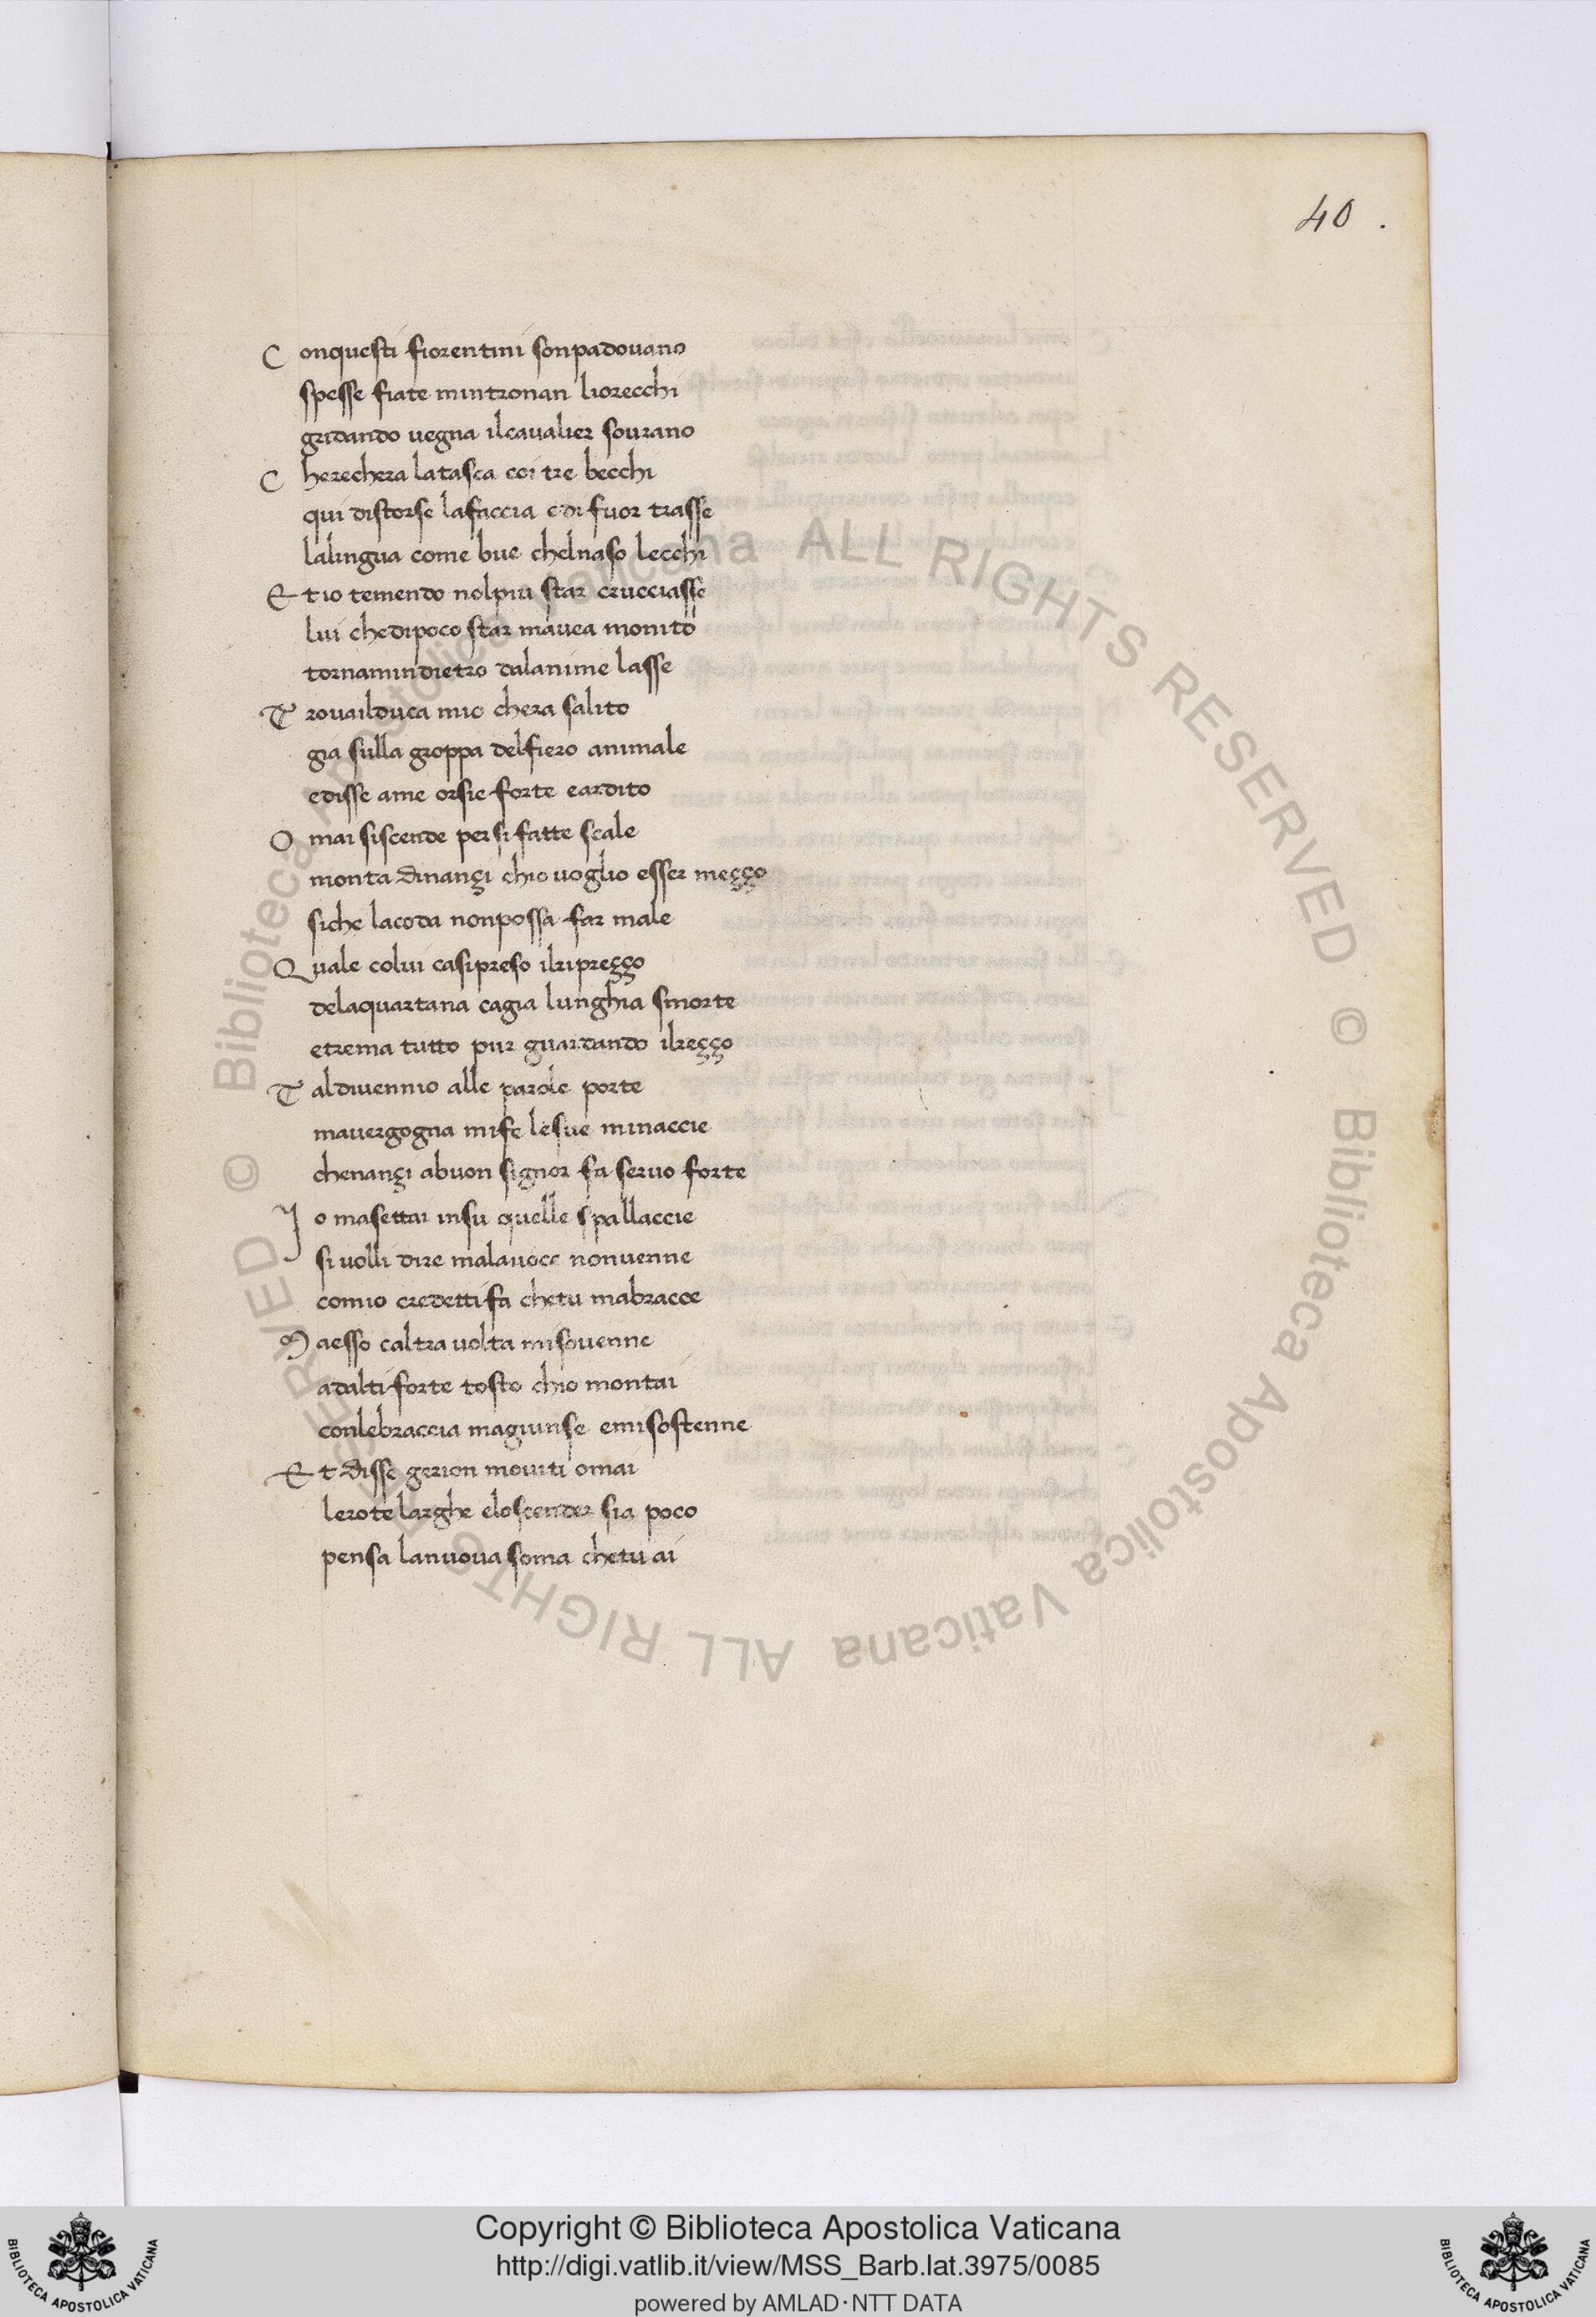 40 .
C onquesti fiorentini sonpadouano
spesse fiate mintronan liorecchi
gridando uegna ilcaualier sourano
C herechera latasca coi tre becchi
qui distorse lafaccia edi fuor trasse
lalingua come bue chelnaso lecchi
E tio temendo nolpiu star crucciasse
lui chedipoco star mauea monito
tornamindietro dalanime lasse
T rouailduca mio chera salito
gia sulla groppa delfiero animale
edisse ame orsie forte eardito
O mai siscende per si fatte scale
monta dinançi chio uoglio esser meçço
siche lacoda nonpossa far male
Q uale colui casipreso ilripreçço
delaquartana cagia lunghia smorte
etrema tutto pur guardando ilreçço
T aldiuennio alle parole porte
mauergogna mife lesue minaccie
chenançi abuon signor fa seruo forte
I o masettai insu quelle spallaccie
si uolli dire malauoce nonuenne
comio credetti fa chetu mabracce
M aesso caltra uolta misouenne
adalti forte tosto chio montai
conlebraccia magiunse emisostenne
E t disse gerion mouiti omai
lerote larghe eloscender sia poco
pensa lanuoua soma chetu ai
© Biblioteca Apostolica Vaticana ALL RIGHTS RESERVED © Biblioteca Apostolica Vaticana ALL RIGHTS RESERVED
BIBLIOTECA APOSTOLICA VATICANA
Copyright © Biblioteca Apostolica Vaticana
http://digi.vatlib.it/view/MSS_Barb.lat.3975/0085
powered by AMLAD·NTT DATA
BIBLIOTECA APOSTOLICA VATICANA